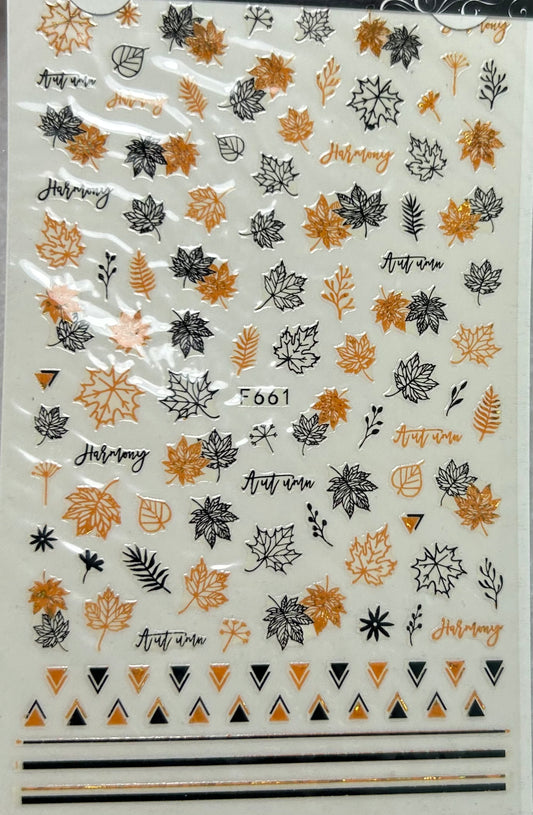 Harmony
Autumn
Harmony
Harmony
Harmony
Autumn
F661
Autumn
Harmony
Autumn
Harmony
Autumn